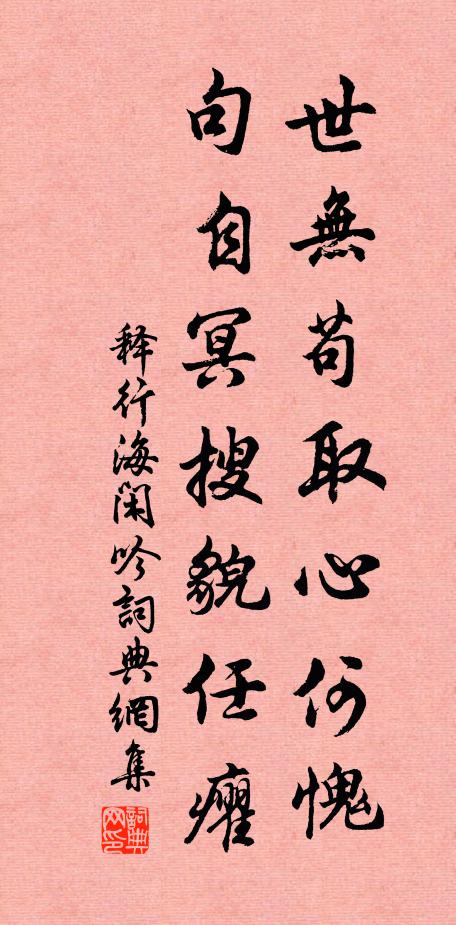 世無苟取心何愧
句自冥搜貌任癯
释行海闲吟詞典網集
詞典网印